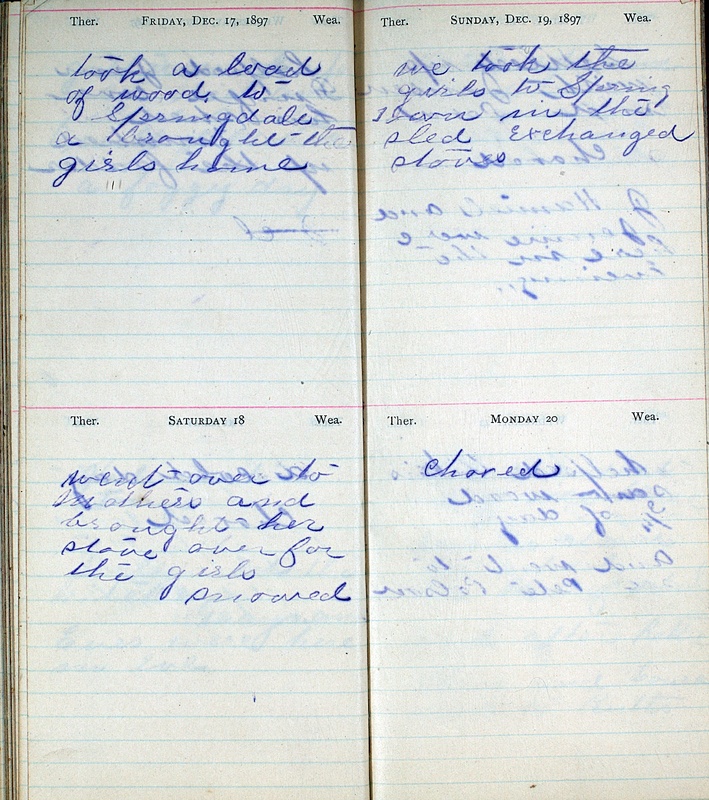 Ther. FRIDAY, DEC. 17, 1897 Wea.
took a load
of wood to
Springdale
a brought the
girls home
Ther. SATURDAY 18 Wea.
went over to
Mothers and
brought her
stove over for
the girls
snowed
Ther. SUNDAY, DEC. 19, 1897 Wea.
we took the
girls to Spring
town in the
sled Exchanged
stoves
Ther. MONDAY 20 Wea.
Chored